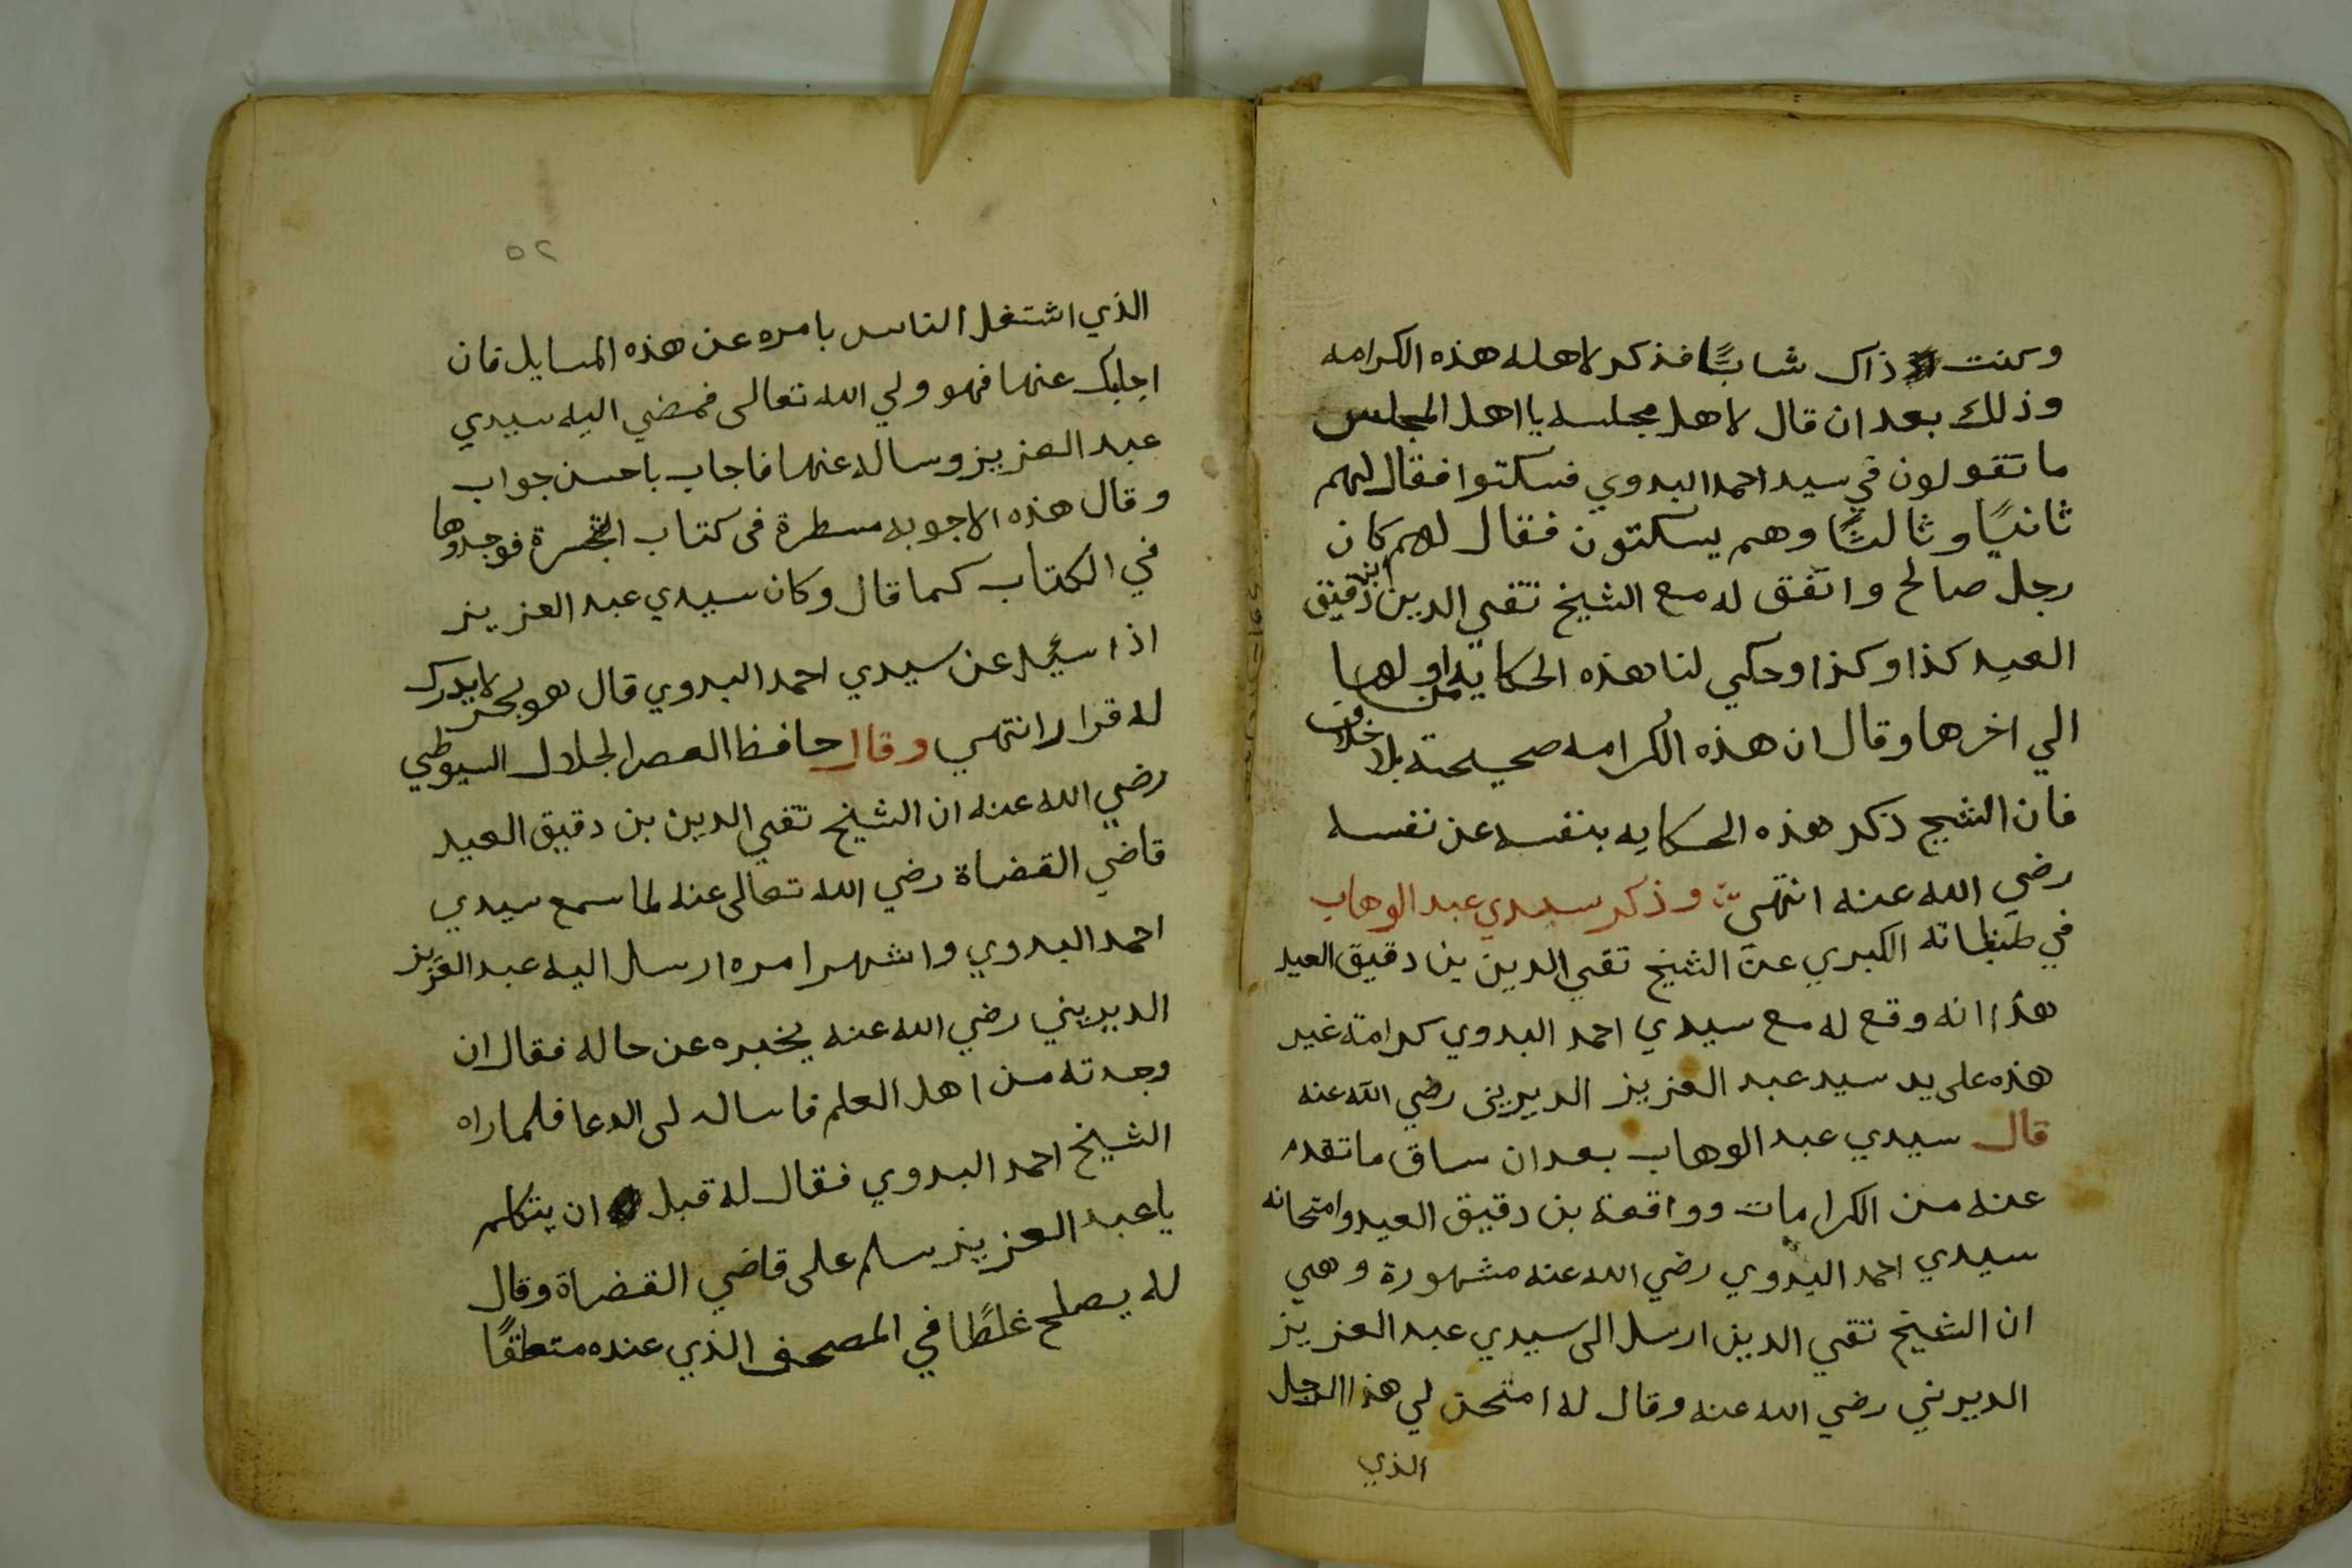 وكنت اذ ذاك شابًا فذكر لاهله هذه الكرامه
وذلك بعد ان قال لاهل مجلسه يا اهل المجلس
ما تقولون في سيد احمد البدوي فسكتوا فقال لهم
ثانيًا وثالثًا وهم يسكتون فقال لهم كان
رجل صالح واتفق له مع الشيخ تقي الدين ابن دقيق
العيد كذا وكذا وحكي لنا هذه الحكاية من اولها
الي اخرها وقال ان هذه الكرامه صحيحة بلا خلاف
فان الشيخ ذكر هذه الحكايه بنفسه عن نفسه
رضي الله عنه انتهى وذكر سيدي عبد الوهاب
في طبقاته الكبري عن الشيخ تقي الدين بن دقيق العيد
هذا انه وقع له مع سيدي احمد البدوي كرامة غير
هذه على يد سيد عبد العزيز الديريني رضي الله عنه
قال سيدي عبد الوهاب بعد ان ساق ما تقدم
عنه من الكرامات وواقعة بن دقيق العيد وامتحانه
سيدي احمد البدوي رضي الله عنه مشهورة وهي
ان الشيخ تقي الدين ارسل الى سيدي عبد العزيز
الديرني رضي الله عنه وقال له امتحن لي هذا الرجل
الذي
٥٢
الذي اشتغل الناس بامره عن هذه المسايل فان
اجابك عنها فهو ولي الله تعالى فمضي اليه سيدي
عبد العزيز وساله عنها فاجاب باحسن جواب
وقال هذه الاجوبه مسطرة في كتاب الشجرة فوجدوها
في الكتاب كما قال وكان سيدي عبد العزيز
اذا سئيل عن سيدي احمد البدوي قال هو بحر لا يدرك
له قرار انتهي وقال حافظ العصر الجلال السيوطي
رضي الله عنه ان الشيخ تقي الدين بن دقيق العيد
قاضي القضاة رضي الله تعالى عنه لما سمع سيدي
احمد البدوي واشهر امره ارسل اليه عبد العزيز
الديريني رضي الله عنه يخبره عن حاله فقال ان
وجدته من اهل العلم فاساله لى الدعا فلما راه
الشيخ احمد البدوي فقال له قبل ان يتكلم
يا عبد العزيز سلم على قاضي القضاة وقال
له يصلح غلطًا في المصحف الذي عنده متعلقًا